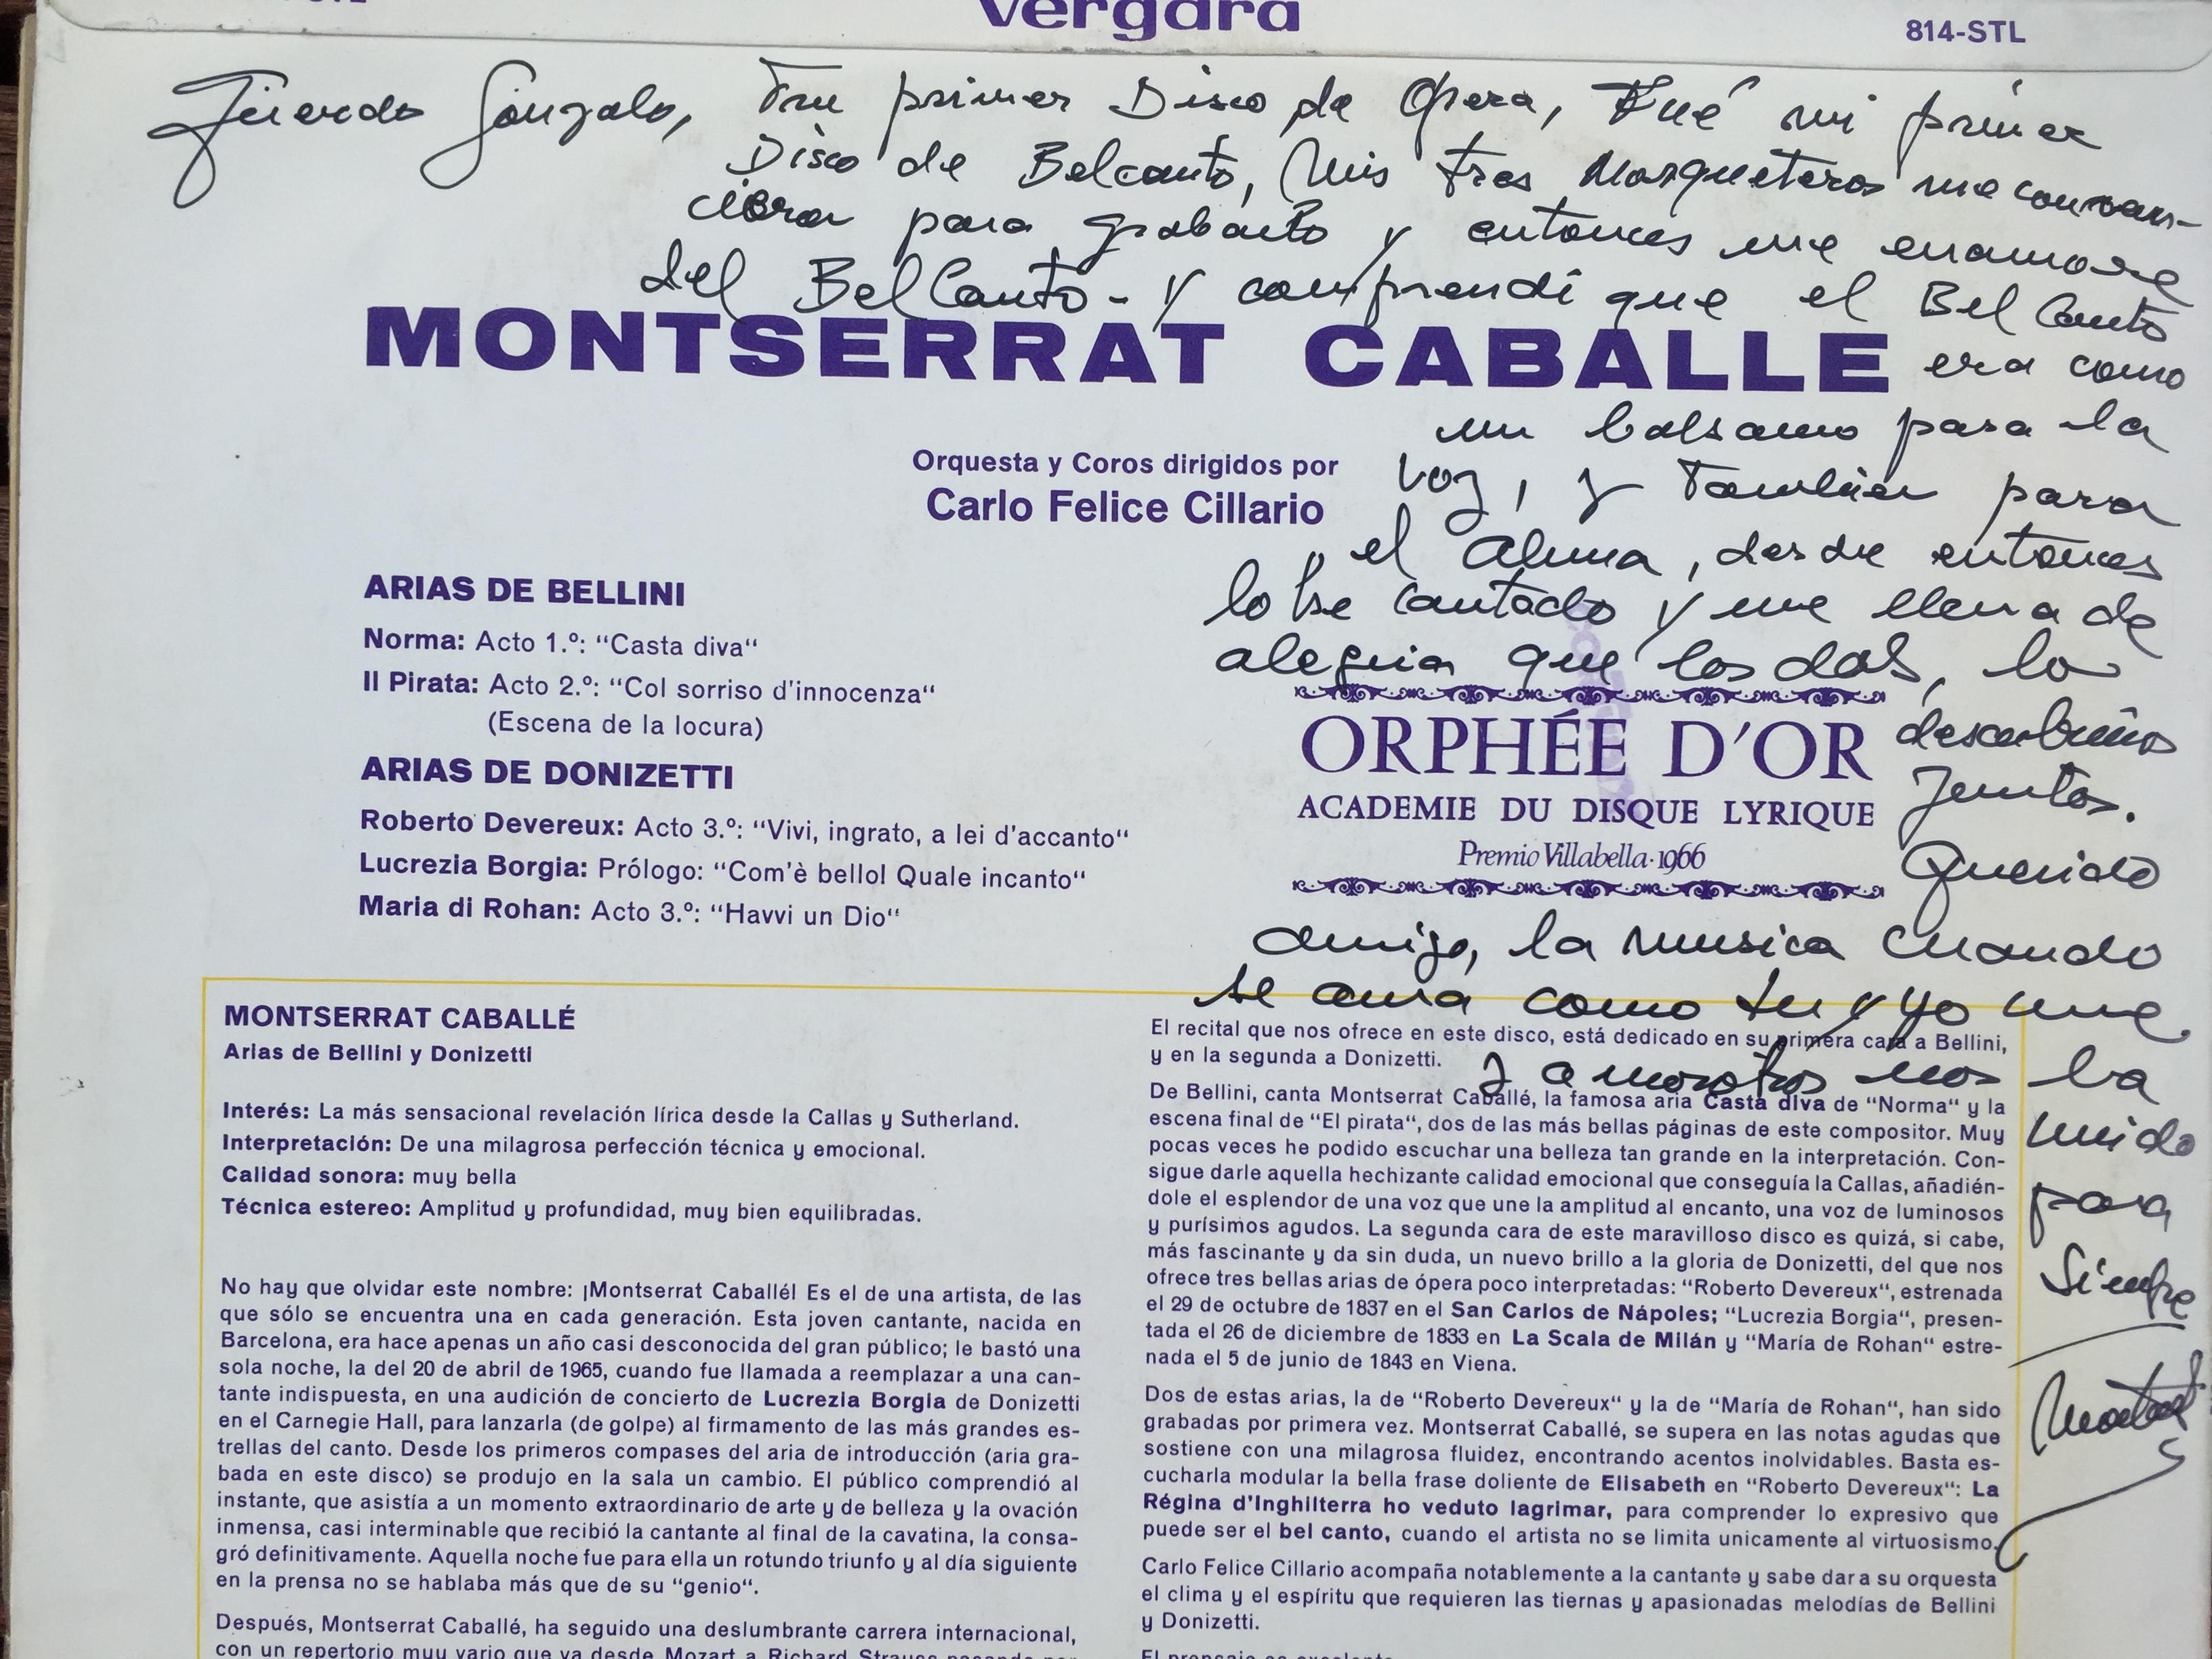 vergara
814-STL
Querido Gonzalo, Tu primer Disco de Opera, Fué mi primer
Disco de Belcanto, Mis tres Mosqueteros me conven-
cieron para grabarlo y entonces me enamore
del Bel Canto - y comprendí que el Bel Canto
era como
un balsamo para la
voz, y Tambien para
el Alma, desde entonces
lo he cantado y me llena de
alegria que los dos, lo
descubrimos
Juntos.
Querido
amigo, la musica cuando
se ama como tu y yo une
y a nosotros nos ha
unido
para
Siempre
Montserrat
MONTSERRAT CABALLE
Orquesta y Coros dirigidos por
Carlo Felice Cillario
ARIAS DE BELLINI
Norma: Acto 1.º: “Casta diva“
Il Pirata: Acto 2.º: “Col sorriso d’innocenza“
(Escena de la locura)
ARIAS DE DONIZETTI
Roberto Devereux: Acto 3.º: “Vivi, ingrato, a lei d’accanto“
Lucrezia Borgia: Prólogo: “Com’è bello! Quale incanto“
Maria di Rohan: Acto 3.º: “Havvi un Dio“
ORPHÉE D’OR
ACADEMIE DU DISQUE LYRIQUE
Premio Villabella·1966
MONTSERRAT CABALLÉ
Arias de Bellini y Donizetti
Interés: La más sensacional revelación lírica desde la Callas y Sutherland.
Interpretación: De una milagrosa perfección técnica y emocional.
Calidad sonora: muy bella
Técnica estereo: Amplitud y profundidad, muy bien equilibradas.
No hay que olvidar este nombre: ¡Montserrat Caballé! Es el de una artista, de las
que sólo se encuentra una en cada generación. Esta joven cantante, nacida en
Barcelona, era hace apenas un año casi desconocida del gran público; le bastó una
sola noche, la del 20 de abril de 1965, cuando fue llamada a reemplazar a una can-
tante indispuesta, en una audición de concierto de Lucrezia Borgia de Donizetti
en el Carnegie Hall, para lanzarla (de golpe) al firmamento de las más grandes es-
trellas del canto. Desde los primeros compases del aria de introducción (aria gra-
bada en este disco) se produjo en la sala un cambio. El público comprendió al
instante, que asistía a un momento extraordinario de arte y de belleza y la ovación
inmensa, casi interminable que recibió la cantante al final de la cavatina, la consa-
gró definitivamente. Aquella noche fue para ella un rotundo triunfo y al día siguiente
en la prensa no se hablaba más que de su “genio“.
Después, Montserrat Caballé, ha seguido una deslumbrante carrera internacional,
con un repertorio muy vario que va desde Mozart a Richard Strauss pasando por
El recital que nos ofrece en este disco, está dedicado en su primera cara a Bellini,
y en la segunda a Donizetti.
De Bellini, canta Montserrat Caballé, la famosa aria Casta diva de “Norma“ y la
escena final de “El pirata“, dos de las más bellas páginas de este compositor. Muy
pocas veces he podido escuchar una belleza tan grande en la interpretación. Con-
sigue darle aquella hechizante calidad emocional que conseguía la Callas, añadién-
dole el esplendor de una voz que une la amplitud al encanto, una voz de luminosos
y purísimos agudos. La segunda cara de este maravilloso disco es quizá, si cabe,
más fascinante y da sin duda, un nuevo brillo a la gloria de Donizetti, del que nos
ofrece tres bellas arias de ópera poco interpretadas: “Roberto Devereux“, estrenada
el 29 de octubre de 1837 en el San Carlos de Nápoles; “Lucrezia Borgia“, presen-
tada el 26 de diciembre de 1833 en La Scala de Milán y “María de Rohan“ estre-
nada el 5 de junio de 1843 en Viena.
Dos de estas arias, la de “Roberto Devereux“ y la de “María de Rohan“, han sido
grabadas por primera vez. Montserrat Caballé, se supera en las notas agudas que
sostiene con una milagrosa fluidez, encontrando acentos inolvidables. Basta es-
cucharla modular la bella frase doliente de Elisabeth en “Roberto Devereux“: La
Régina d’Inghilterra ho veduto lagrimar, para comprender lo expresivo que
puede ser el bel canto, cuando el artista no se limita unicamente al virtuosismo.
Carlo Felice Cillario acompaña notablemente a la cantante y sabe dar a su orquesta
el clima y el espíritu que requieren las tiernas y apasionadas melodías de Bellini
y Donizetti.